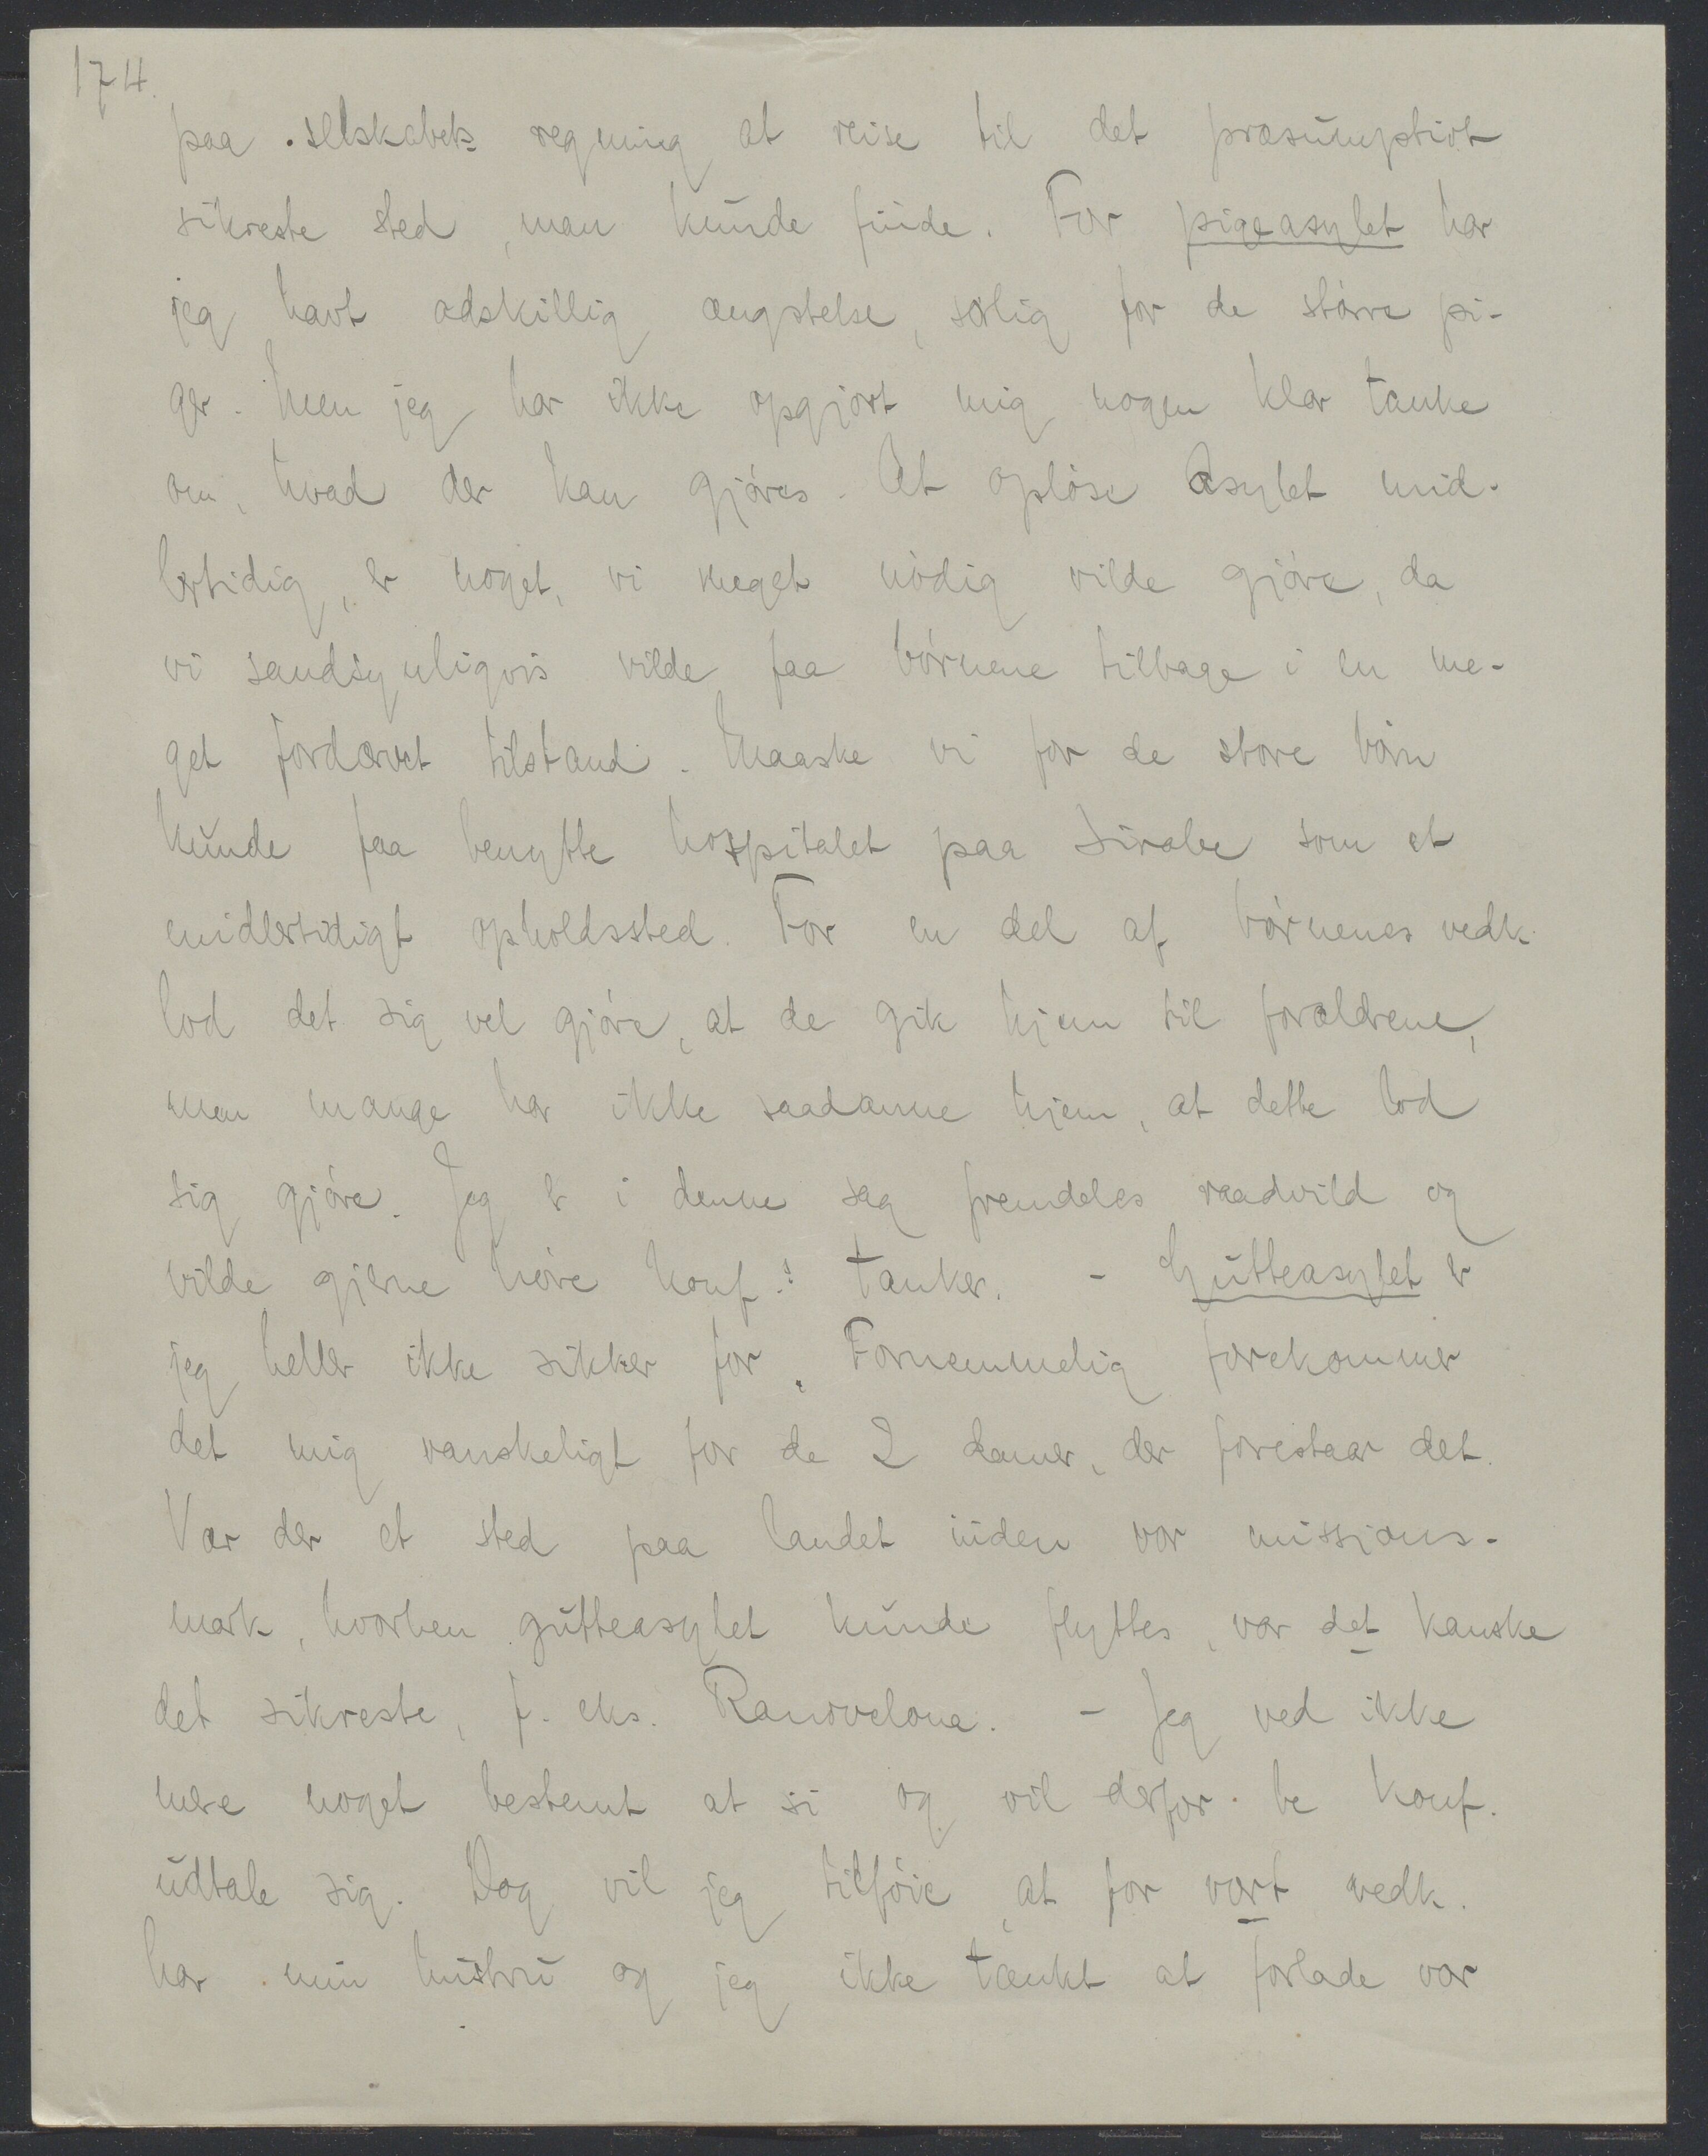 174.
paa selskabets regning at reise til det præsumptivt
sikreste sted, man kunde finde. For pigeasylet har
jeg havt adskillig ængstelse, særlig for de større pi-
ger. Men jeg har ikke opgjort mig nogen klar tanke
om, hvad der kan gjøres. At opløse Asylet mid-
lertidig, er noget, vi meget nødig vilde gjøre, da
vi sandsynligvis vilde faa børnene tilbage i en me-
get fordærvet tilstand. Maaske vi for de store børn
kunde faa benytte hospitalet paa Sirabe som et
midlertidigt opholdssted. For en del af børnenes vedk.
lod det sig vel gjøre, at de gik hjem til forældrene,
men mange har ikke saadanne hjem, at dette lod
sig gjøre. Jeg er i denne sag fremdeles raadvild og
vilde gjerne høre konf.s tanker. - Gutteasylet er
jeg heller ikke sikker for. Fornemmelig forekommer
det mig vanskeligt for de 2 damer, der forestaar det.
Var der et sted paa landet inden vor missjons-
mark, hvorhen gutteasylet kunde flyttes, var det kanske
det sikreste, f. eks. Ranovelona. - Jeg ved ikke
mere noget bestemt at si og vil derfor be konf.
udtale sig. Dog vil jeg tilføie, at for vort vedk.
har min hustru og jeg ikke tænkt at forlade vor